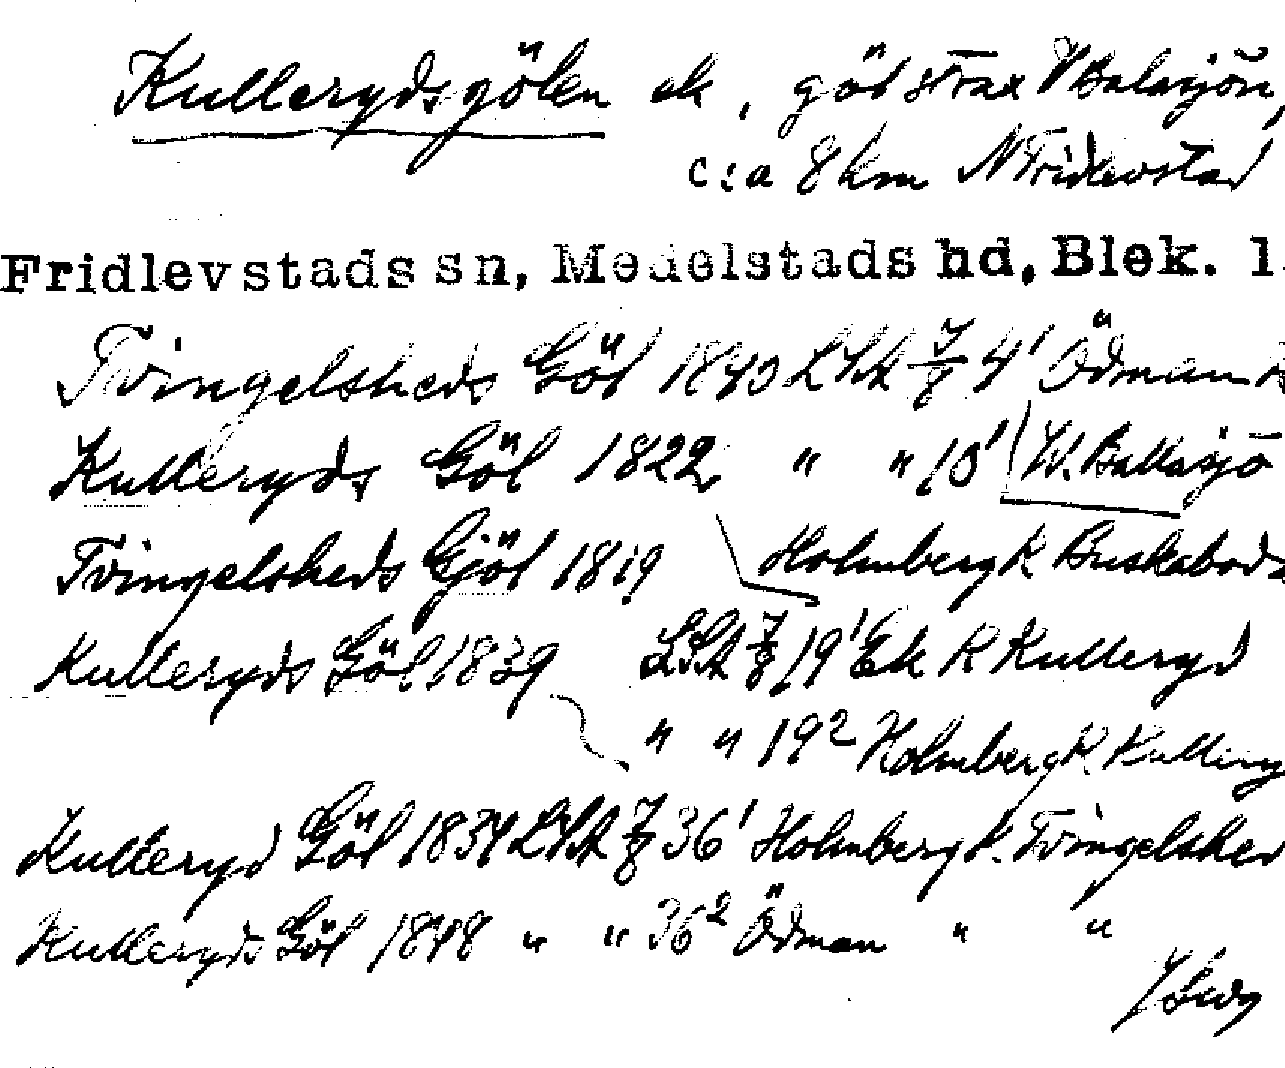 Kullerydsgölen ek, göl strax V Balasjön,
c:a 8 km N Fridlevstad
Fridlevstads sn, Medelstads hd, Blek. l
Tvingelsheds Göl 1840 LSA 7/8 4' Ödman
Kulleryds Göl 1822 " " 10' W. Ballasjö
Tvingelsheds Gjöl 1819 Holmberg K Buskaboda
Kulleryds Göl 1839 LSA 7/8 19' Ek K Kulleryd
" " 19² Holmberg K. Kullery
Kulleryd Göl 1834 LSA 7/8 36' Holmberg K. Tvingelshed
Kulleryds Göl 1848 " " 36² Ödman " "